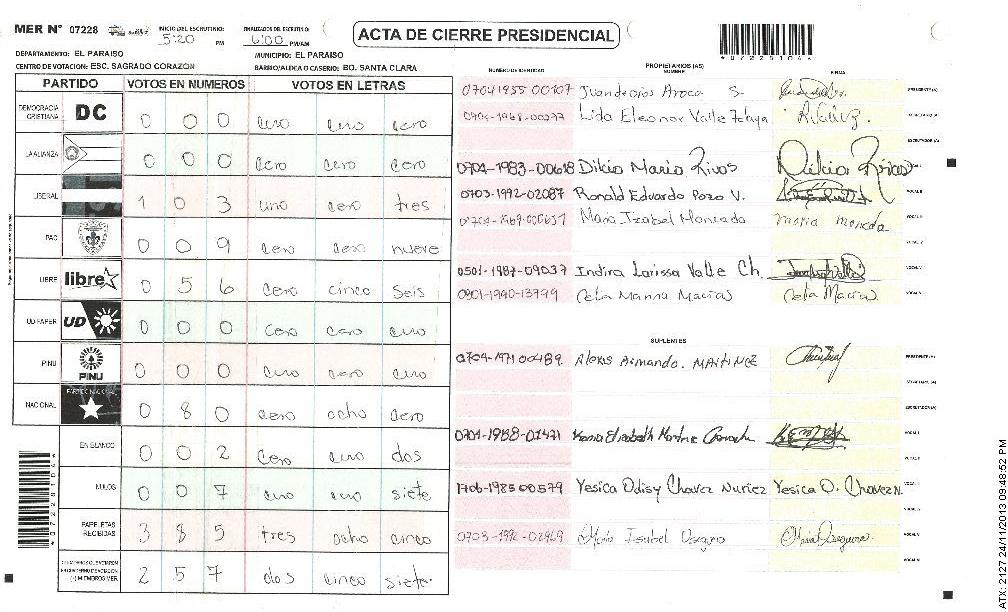 MER N° 07228 INICIO DEL ESCRUTINIO: FINALIZADOS DEL ESCRUTINIO:
5:20 PM 6:00 PM/AM
ACTA DE CIERRE PRESIDENCIAL
DEPARTAMENTO: EL PARAISO MUNICIPIO: EL PARAISO
CENTRO DE VOTACION: ESC. SAGRADO CORAZON BARRIO/ALDEA O CASERIO: BO. SANTA CLARA
PARTIDO VOTOS EN NUMEROS VOTOS EN LETRAS
DEMOCRACIA CRISTIANA DC 0 0 0 cero cero cero
LA ALIANZA 0 0 0 cero cero cero
LIBERAL 1 0 3 uno cero tres
PAC 0 0 9 cero cero nueve
LIBRE libre 0 5 6 cero cinco seis
UD FAPER UD 0 0 0 cero cero cero
PINU PINU 0 0 0 cero cero cero
NACIONAL PARTIDO NACIONAL 0 8 0 cero ocho cero
EN BLANCO 0 0 2 cero cero dos
NULOS 0 0 7 cero cero siete
PAPELETAS RECIBIDAS 3 8 5 tres ocho cinco
MIEMBROS MER 2 5 7 dos cinco siete
PROPIETARIOS (AS)
NUMERO DE IDENTIDAD NOMBRE FIRMA
0704 1955 00107 Juandedios Aroca S. PRESIDENTE (A)
Lida Eleonor Valle Zelaya SECRETARIO (A)
ESCRUTADOR (A)
0704-1983-00618 Dilcia Maria Rivas Dilcia Rivas VOCAL I
0703-1992-02087 Ronald Eduardo Pozo V. VOCAL II
Maria Izabel Moncada
VOCAL IV
0501-1987-09037 Indira Larissa Valle Ch. VOCAL V
0801-1940-13799 Celia Marina Macias Celia Macias
SUPLENTES
0704-1971 00489 Alexis Armando. MARTINEZ PRESIDENTE (A)
SECRETARIA (A)
ESCRUTADOR (A)
VOCAL I
VOCAL II
1706-1985 00579 Yesica Odisy Chavez Nuñez Yesica O. Chavez N.
VOCAL IV
0703-1992-02969 Maria Isabel VOCAL V
*07228104*
ATX: 2127 24/11/2013 09:48:52 PM